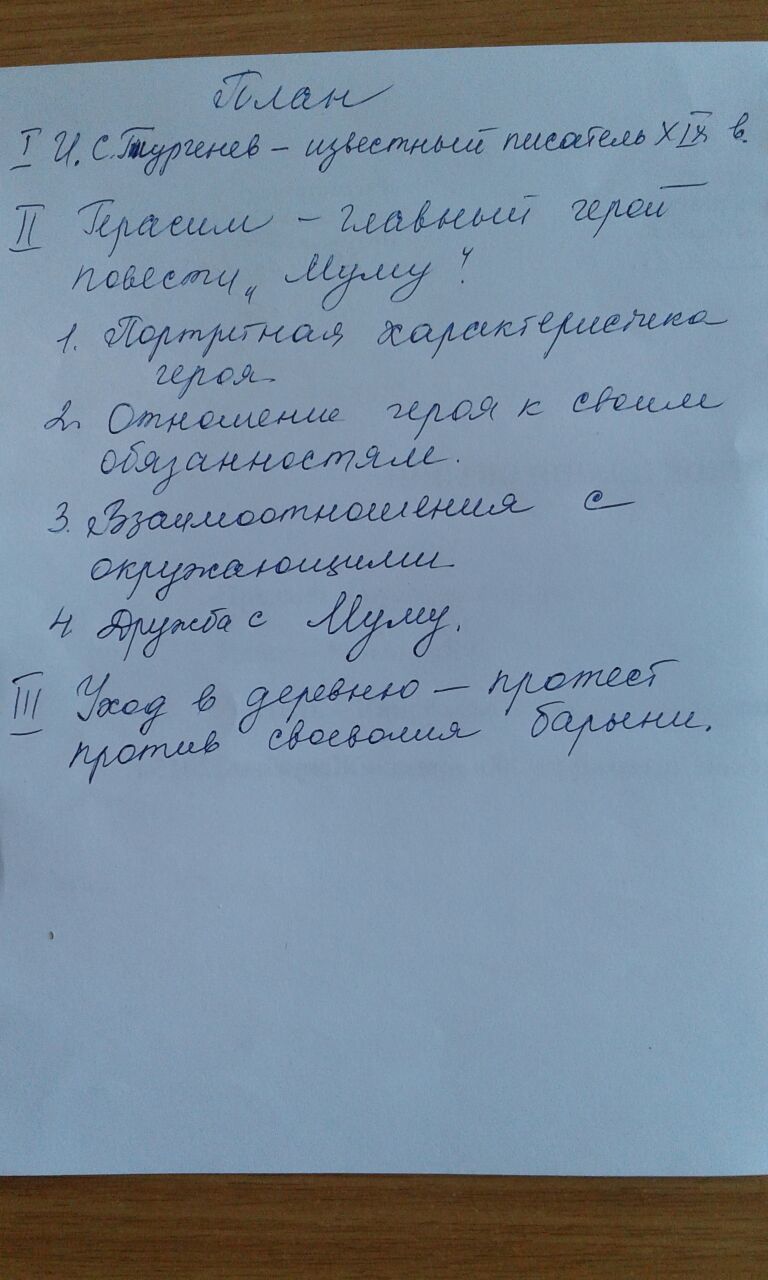 План
I И. С. Тургенев – известный писатель XIX в.
II Герасим – главный герой
повести „Муму“.
1. Портретная характеристика
героя.
2. Отношение героя к своим
обязанностям.
3. Взаимоотношения с
окружающими.
4. Дружба с Муму.
III Уход в деревню – протест
против своеволия барыни.